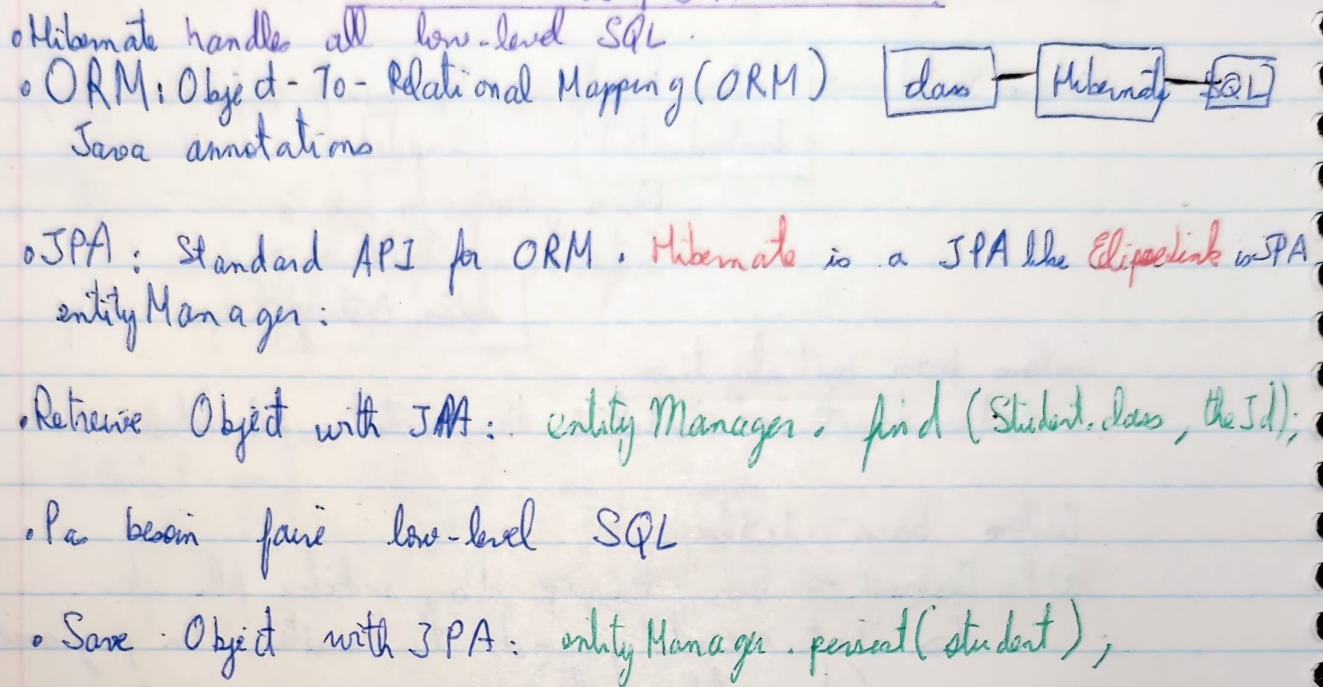 • Hibernate handles all low-level SQL.
• ORM: Object-To-Relational Mapping (ORM) class Hibernate SQL
Java annotations
• JPA: Standard API for ORM. Hibernate is a JPA like Eclipselink is JPA
entityManager:
• Retrieve Object with JPA: entityManager.find(Student.class, theId);
• Pas besoin faire low-level SQL
• Save Object with JPA: entityManager.persist(student);